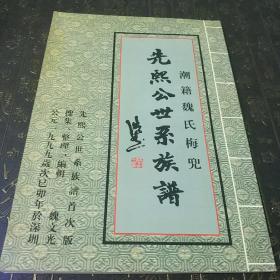 潮籍魏氏梅兜
先熙公世系族譜
先熙公世系族譜首次版
搜集·整理·編輯 魏文光
公元一九九九歲次己卯年於深圳